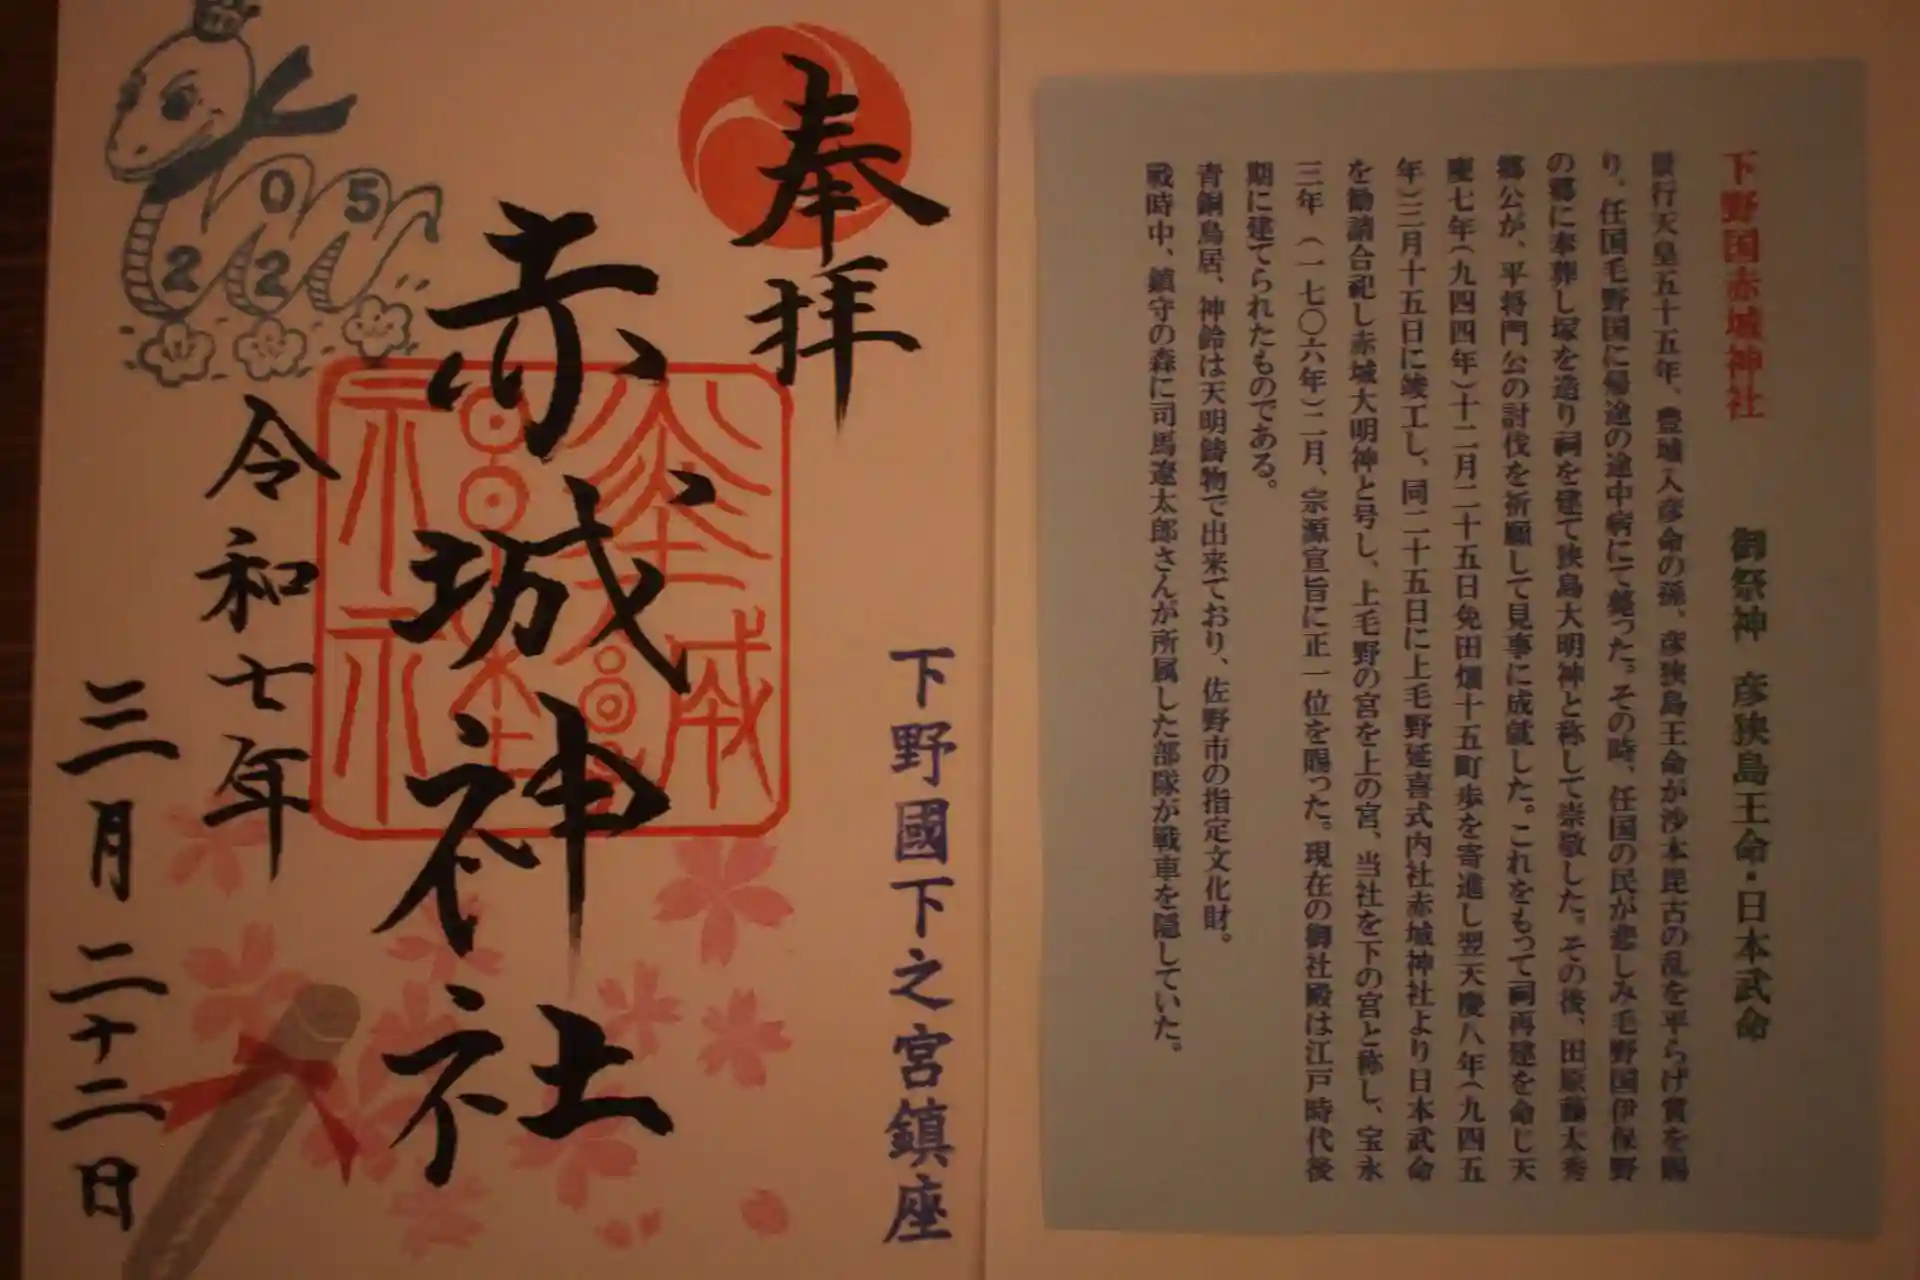 下野国赤城神社　御祭神　彦狭島王命・日本武命
景行天皇五十五年、豊城入彦命の孫、彦狭島王命が沙本毘古の乱を平らげ賞を賜
り、任国毛野国に帰途の途中病にて薨った。その時、任国の民が悲しみ毛野国伊保野
の郷に奉葬し塚を造り祠を建て狭島大明神と称して崇敬した。その後、田原藤太秀
郷公が、平将門公の討伐を祈願して見事に成就した。これをもって祠再建を命じ天
慶七年(九四四年)十二月二十五日免田畑十五町歩を寄進し翌天慶八年(九四五
年)三月十五日に竣工し、同二十五日に上毛野延喜式内社赤城神社より日本武命
を勧請合祀し赤城大明神と号し、上毛野の宮を上の宮、当社を下の宮と称し、宝永
三年(一七〇六年)二月、宗源宣旨に正一位を賜った。現在の御社殿は江戸時代後
期に建てられたものである。
青銅鳥居、神鈴は天明鋳物で出来ており、佐野市の指定文化財。
戦時中、鎮守の森に司馬遼太郎さんが所属した部隊が戦車を隠していた。
下野國下之宮鎮座
奉拝
赤城神社
令和七年
三月二十二日
2025